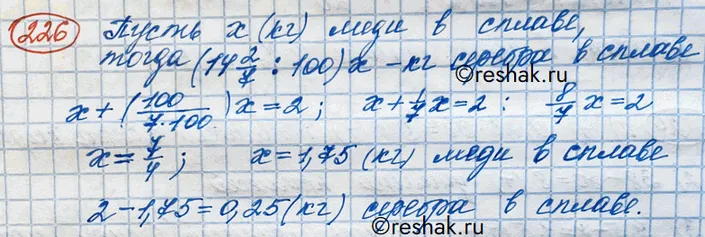 226 Пусть x (кг) меди в сплаве,
тогда (14 2/7 : 100) x - кг серебра в сплаве
©reshak.ru
x + (100/7·100) x = 2 ; x + 1/7 x = 2 : 8/7 x = 2
x = 7/4 ; x = 1,75 (кг) меди в сплаве
2 - 1,75 = 0,25 (кг) серебра в сплаве.
©reshak.ru